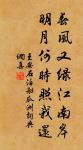 春風又綠江南岸
明月何時照我還
王安石泊船瓜洲詞典
網喜